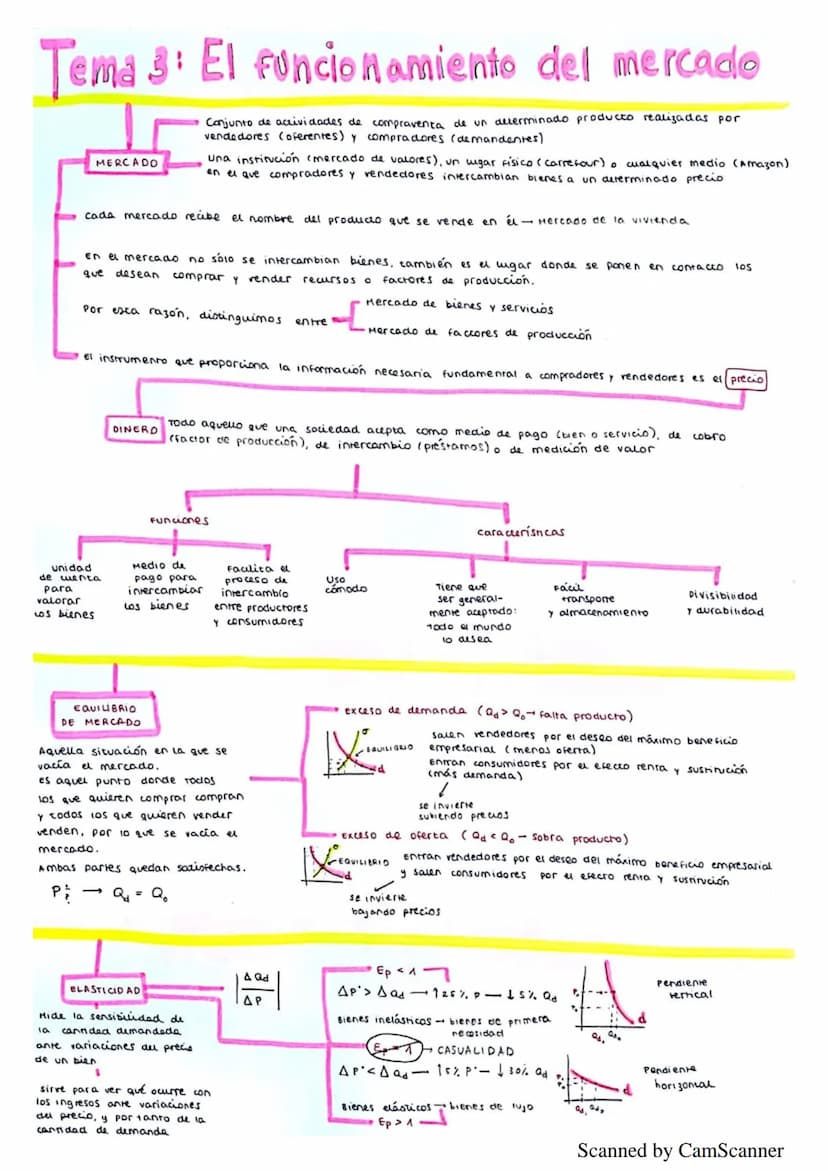 Tema 3: El funcionamiento del mercado
Conjunto de actividades de compraventa de un determinado producto realizadas por
vendedores (oferentes) y compradores (demandantes)
MERCADO
una institución (mercado de valores), un lugar físico (carrefour) o cualquier medio (Amazon)
en el que compradores y vendedores intercambian bienes a un determinado precio
cada mercado recibe el nombre del producto que se vende en él → Mercado de la vivienda
En el mercado no sólo se intercambian bienes, también es el lugar donde se ponen en contacto los
que desean comprar y vender recursos o factores de producción.
Por esta razón, distinguimos entre
Mercado de bienes y servicios
Mercado de factores de producción
El instrumento que proporciona la información necesaria fundamental a compradores y vendedores es el precio
DINERO
Todo aquello que una sociedad acepta como medio de pago (bien o servicio), de cobro
(factor de producción), de intercambio (préstamos) o de medición de valor
Funciones
características
unidad
de cuenta
para
valorar
los bienes
Medio de
pago para
intercambiar
los bienes
Facilita el
proceso de
intercambio
entre productores
y consumidores
Uso
cómodo
Tiene que
ser general-
mente aceptado:
todo el mundo
lo desea
Fácil
transporte
y almacenamiento
Divisibilidad
y durabilidad
EQUILIBRIO
DE MERCADO
Aquella situación en la que se
vacía el mercado.
es aquel punto donde todos
los que quieren comprar compran
y todos los que quieren vender
venden, por lo que se vacía el
mercado.
Ambas partes quedan satisfechas.
→ Qd = Qo
exceso de demanda (Qd > Qo → Falta producto)
o
EQUILIBRIO
d
salen vendedores por el deseo del máximo beneficio
empresarial (menos oferta)
entran consumidores por el efecto renta y sustitución
(más demanda)
se invierte
subiendo precios
exceso de oferta (Qd < Qo → Sobra producto)
o
EQUILIBRIO
d
entran vendedores por el deseo del máximo beneficio empresarial
y salen consumidores por el efecto renta y sustitución
se invierte
bajando precios
ELASTICIDAD
Mide la sensibilidad de
la cantidad demandada
ante variaciones del precio
de un bien
sirve para ver qué ocurre con
los ingresos ante variaciones
del precio, y por tanto de la
cantidad de demanda
Δ Qd
ΔP
Ep < 1
ΔP > Δ Qd → ↑25% P → ↓5% Qd
Bienes inelásticos → bienes de primera
necesidad
Ep = 1 → CASUALIDAD
ΔP < Δ Qd → ↑5% P → ↓30% Qd
Bienes elásticos → bienes de lujo
Ep > 1
d
Pendiente
vertical
d
Pendiente
horizontal
Scanned by CamScanner